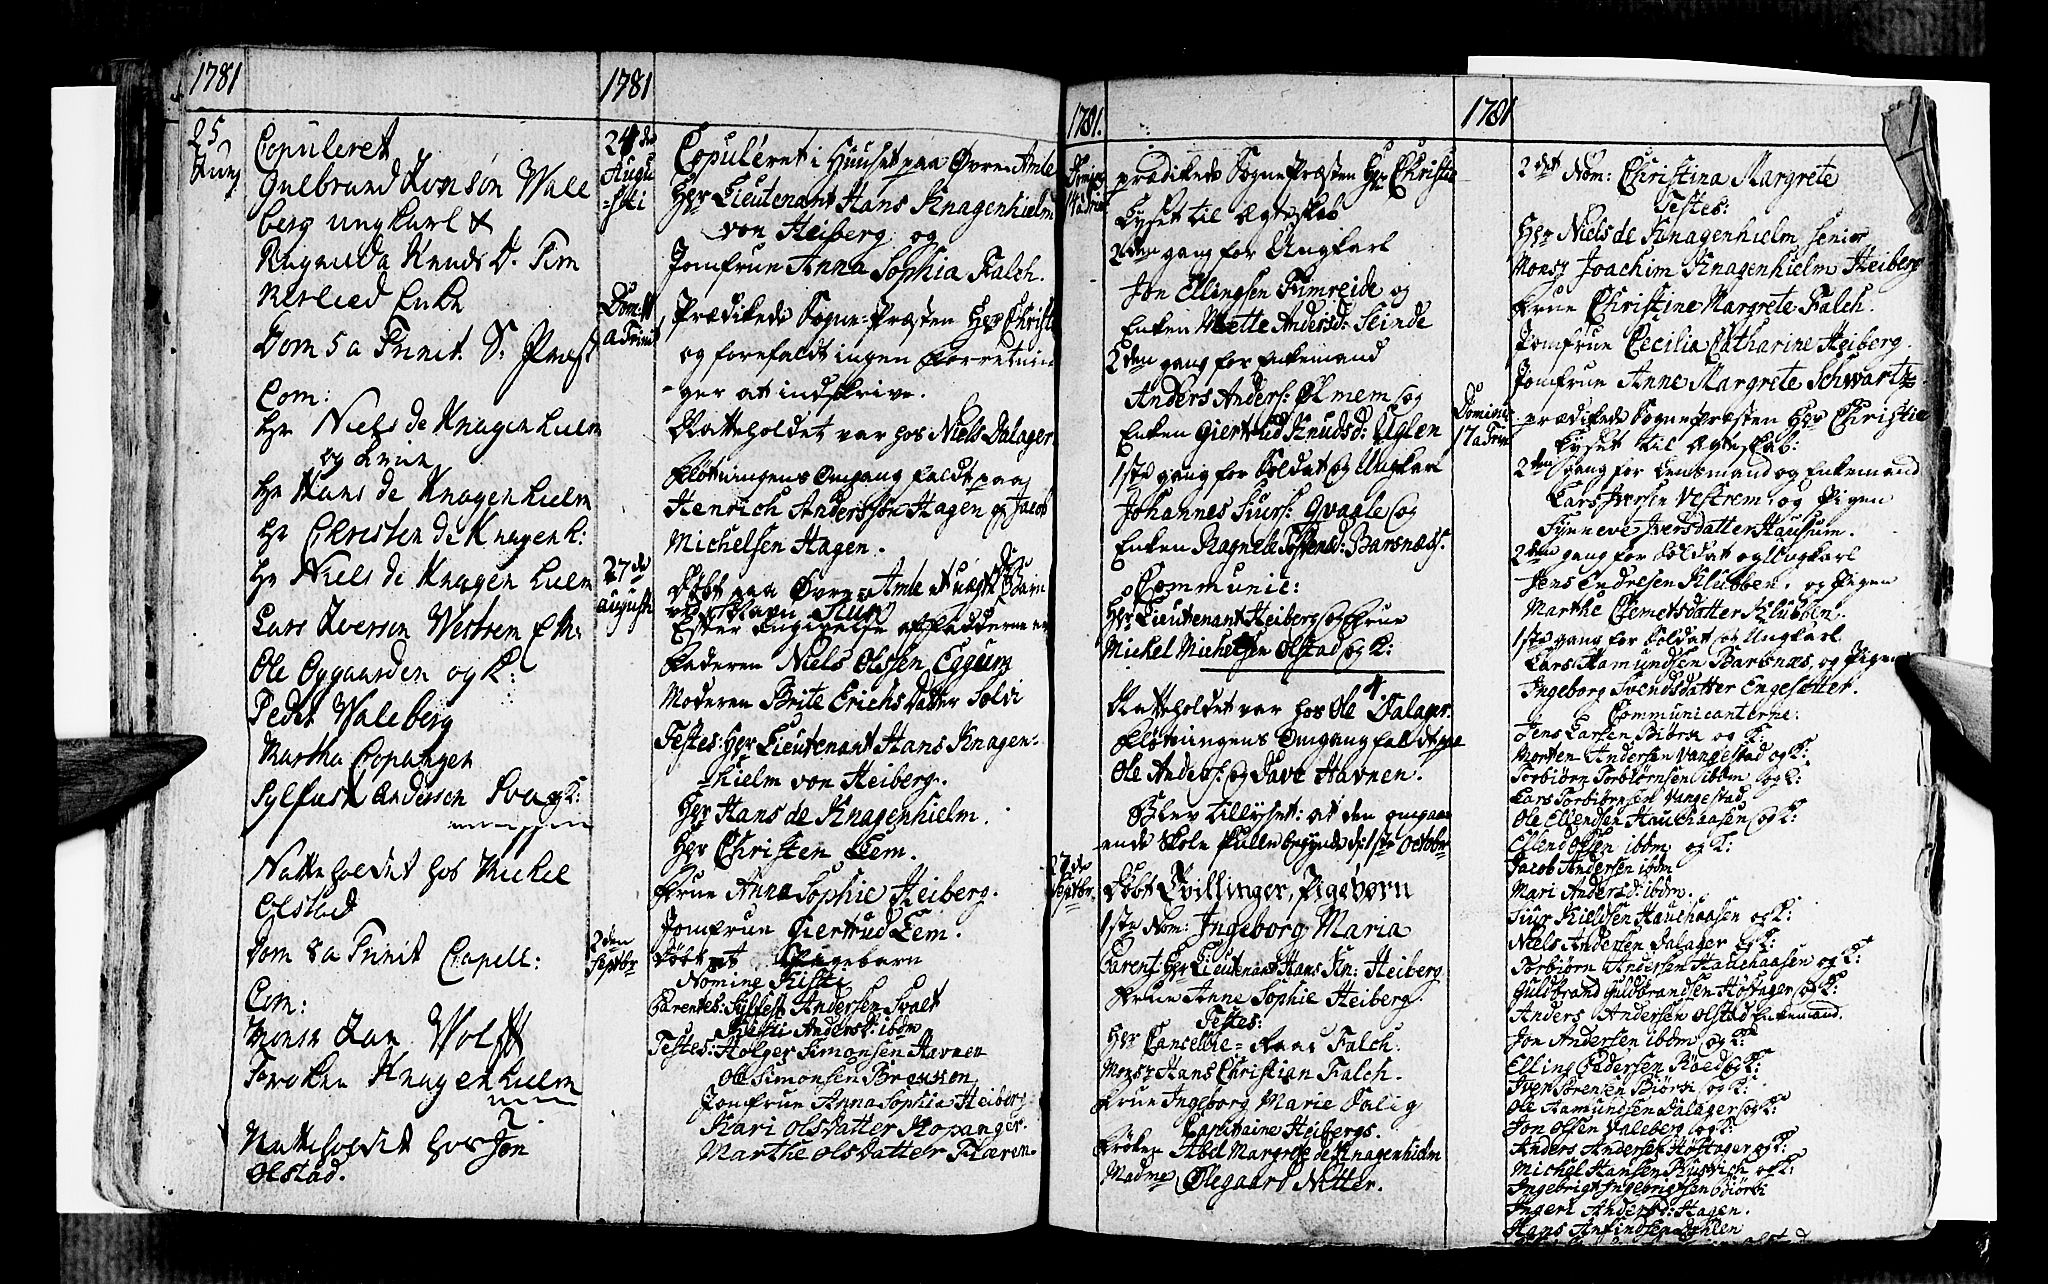 1781
25
Juny
Copuleret
Gulbrand Jonsøn Wale
berg ungkarl &
Ragnilda Knuds D. Tim
Enke
Dom 5 a Trinit. S: Præst
Com:
Hr Niels de Knagenhielm
og Frue
Hr Hans de Knagenhielm
Hr Christen de Knagenh:
Hr Niels de Knagenhielm
Lars Iversen Westrem
Ole Oygaarden og K:
Peder Waleberg
Martha Copangen
Sylfest Andersen K:
Natteholdet hos Michel
Olstad
Dom 8 a Trinit Capell:
Com:
Monsr Jan Wolff
Frøken Knagenhielm
Natteholdet hos Jon
Olstad.
1781
24de
Augu
-sti
Copuleret i Huuset paa Øvre Amle
Hr Lieutenant Hans Knagenhielm
von Heiberg og
Jomfrue Anna Sophia Falch.
Dom: 11
a Trinit
Prædikede Sogne-Præsten Hr Christie
og forefaldt ingen Forretnin
-ger at indskrive.
Natteholdet var hos Niels Dalager
Fløtningens Omgang faldt paa
Henrich Anderssøn Hagen og Jacob
Michelsen Hagen.
27de
augusti
Døbt paa Øvre Amle et uægte Barn
ved Navn
Efter Angivelse af Fadderne er
Faderen Niels Olssen Eggum
Moderen Brite Erichs Datter Solvi
Testes: Hr Lieutenant Hans Knagen-
hielm von Heiberg.
Hr Hans de Knagenhielm.
Hr Christen Leem.
Frue Anna Sophie Heiberg.
Jomfrue Giertrud Leem.
2den
Septbr
Døbt et Pigebarn
Nomine Kisti
Parentes: Sylfest Andersen Svalt
Kisti Andersd: ibdm
Testes: Holger Simonsen Havnen
Ole Simonsen Breussen
Jomfrue Anna Sophia Heiberg
Kari Olsdatter Kopanger.
Marthe Olsdatter Flæren
1781.
Domin:
14 a Trin
prædikede Sogne Præsten Hr Christie
Lyset til Ægteskab
2den gang for Ungkarl
Jon Ellingsen Fimreide og
Enken Mette Andersd: Seinde
2den gang for Enkemand
Anders Anders: Ølmem og
Enken Giertrud Knudsd: Uglen
1ste gang for Soldat og Ungkarl
Johannes Siurs: Qvaale og
Enken Ragnele Barsnæss.
Communic:
Hr Lieutenant Heiberg og Frue
Michel Michelsen Olstad og K:
Natteholdet var hos Ole Dalager:
Fløtningens Omgang faldt paa
Ole Anders: og Save Havnen.
Blev tillyset: at den omgaa-
ende Skole skulle begynde d: 1ste Octobr
27de
Septbr.
Døbt Tvillinger, Pigebørn
1ste Nom: Ingeborg Maria
Parent: Hr Lieutenant Hans Kn: Heiberg
Frue Anne Sophie Heiberg.
Testes:
Hr Cancellie-Raad Falch.
Monsr Hans Christian Falch.
Frue Ingeborg Marie Dalig
Capitaine Heibergs.
Frøken Abel Margrete de Knagenhielm
Madme Ølegaard Nitter.
1781
2det Nom: Christina Margrete
Testes:
Hr Niels de Knagenhielm senior
Monsr Joachim Knagenhielm Heiberg
Frue Christine Margrete Falch.
Jomfrue Cecilia Catharine Heiberg.
Jomfrue Anne Margrete Schwartz
Domini:
17 a Trin
prædikede Sognepræsten Hr Christie
Lyset til Ægteskab:
2den gang for Lensmand og Enkemand
Lars Iversen Vestrem, og Pigen
Synneve Iversdatter Hausum.
2den gang for Soldat og Ungkarl
Jens Endresen Klubben. og Pigen
Marthe Clemetsdatter Klubben.
1ste gang for Soldat og Ungkarl
Lars Hamundsen Barsnæs, og Pigen
Ingeborg Svendsdatter Engesætter.
Communicanterne:
Jens Larsen Biørk og K:
Morten Andersen Vangestad og K:
Torbiørn Torbiørnsen ibdm og K:
Lars Torbiørnsen Vangestad
Ole Ellendsen Hauchaasen og K:
Ellend Olsen ibdm og K:
Jacob Andersen ibdm
Mari Andersd: ibdm.
Siur Kieldsen Hauchaasen og K:
Niels Andersen Dalager og K:
Torbiørn Andersen Hauchaasen og K:
Guldbrand Guldbrandsen Hofager og K:
Anders Andersen Olstad Enkemand.
Jon Andersen ibdm og K:
Elling Pedersen Røed og K:
Iver Sørensen Biørk og K:
Ole Hamundsen Dalager og K:
Jon Olsen Valeberg og K:
Anders Andersen Hofager og K:
Michel Hansen Rustvich og K:
Ingebrigt Ingebrigtsen Biørk
Ingeri Andersd: Hagen.
Hans Anfindsen Dyhlen